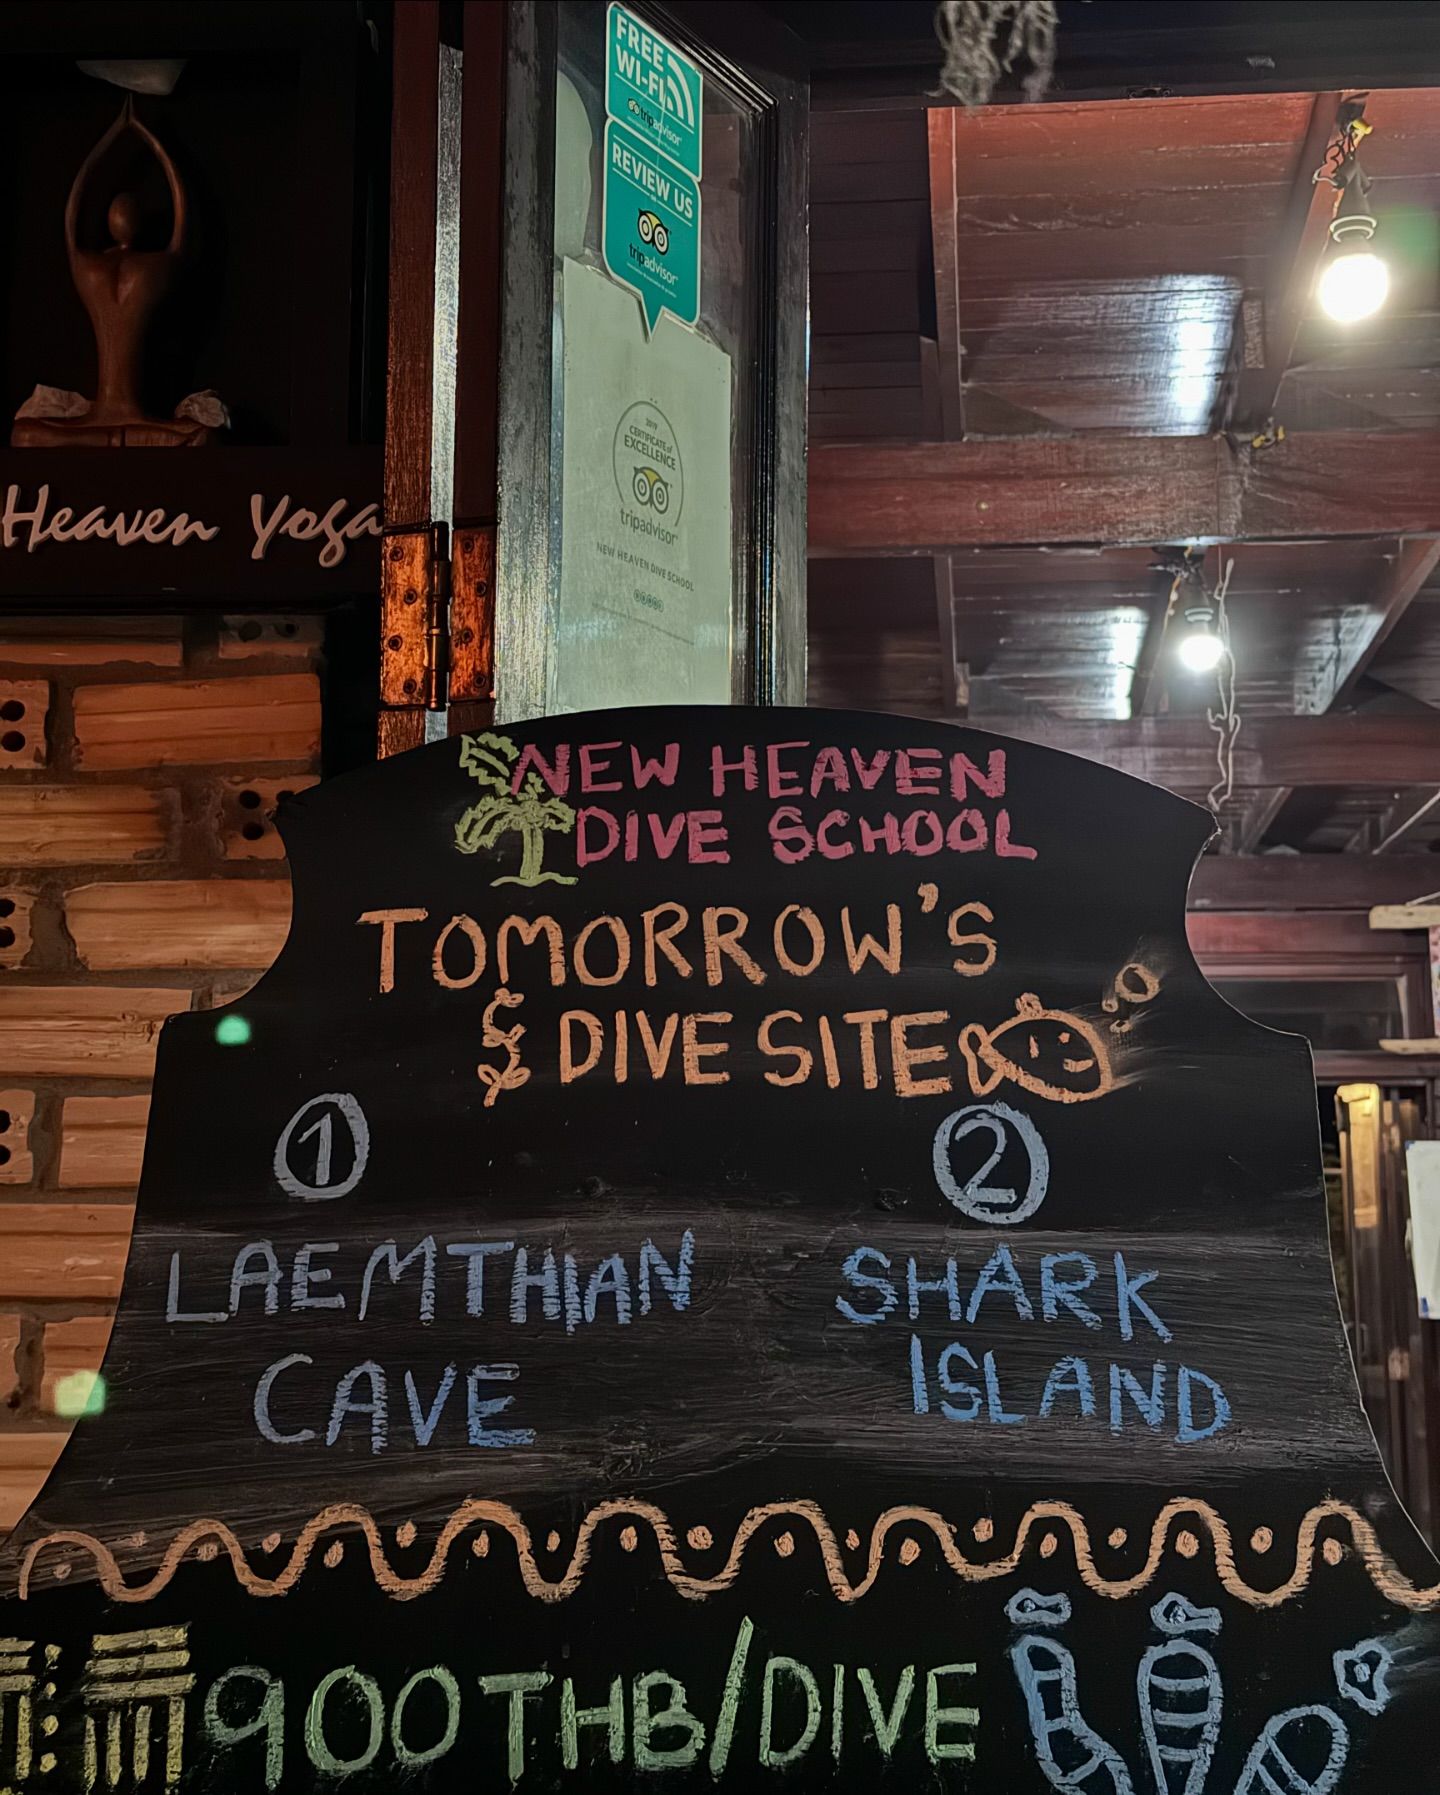 FREE
WI-FI
tripadvisor
REVIEW US
ON
tripadvisor
2019
CERTIFICATE of
EXCELLENCE
tripadvisor
NEW HEAVEN DIVE SCHOOL
Heaven Yoga
NEW HEAVEN
DIVE SCHOOL
TOMORROW'S
DIVE SITE
1
LAEMTHIAN
CAVE
2
SHARK
ISLAND
900THB/DIVE